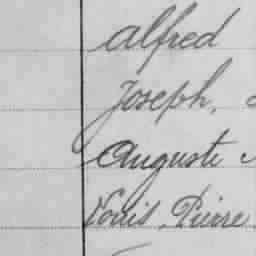 Alfred
Joseph,
Auguste
Louis, Pierre